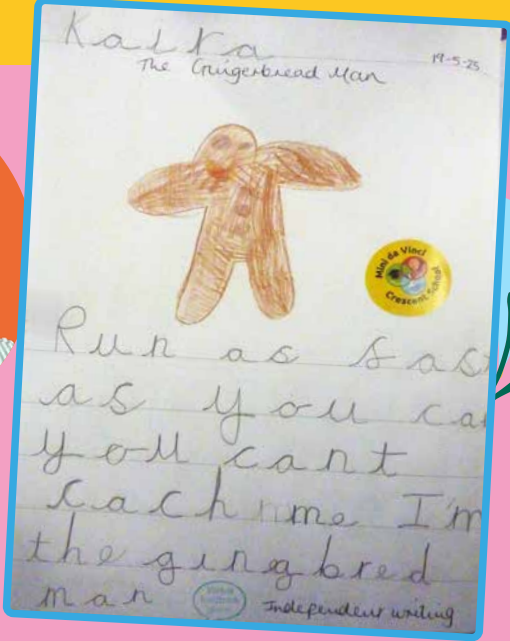 Kaira
19-5-25
The Gingerbread Man
Mini da Vinci
Crescent School
Run as fast
as you ca
you cant
cach me I'm
the gingbred
man
Independent writing